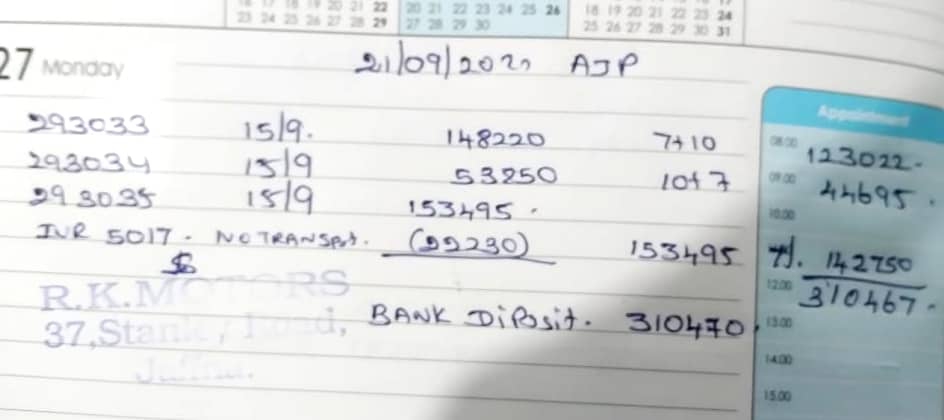 18 19 20 21 22 20 21 22 23 24 25 26 18 19 20 21 22 23 24
23 24 25 26 27 28 29 27 28 29 30 25 26 27 28 29 30 31
27 Monday 21/09/2022 AJP
Appointment
293033 15/9. 148220 7+10 08:00 123022-
293034 15/9 53250 10+7 09:00 44695.
293035 15/9 153495. 10:00
INR 5017. NO TRANSPot. (22230) 153495 7%. 142750
12:00 310467-
R.K.MOTORS
37,Stanley Road, BANK Diposit. 310470, 13:00
Jaffna. 14:00
15:00